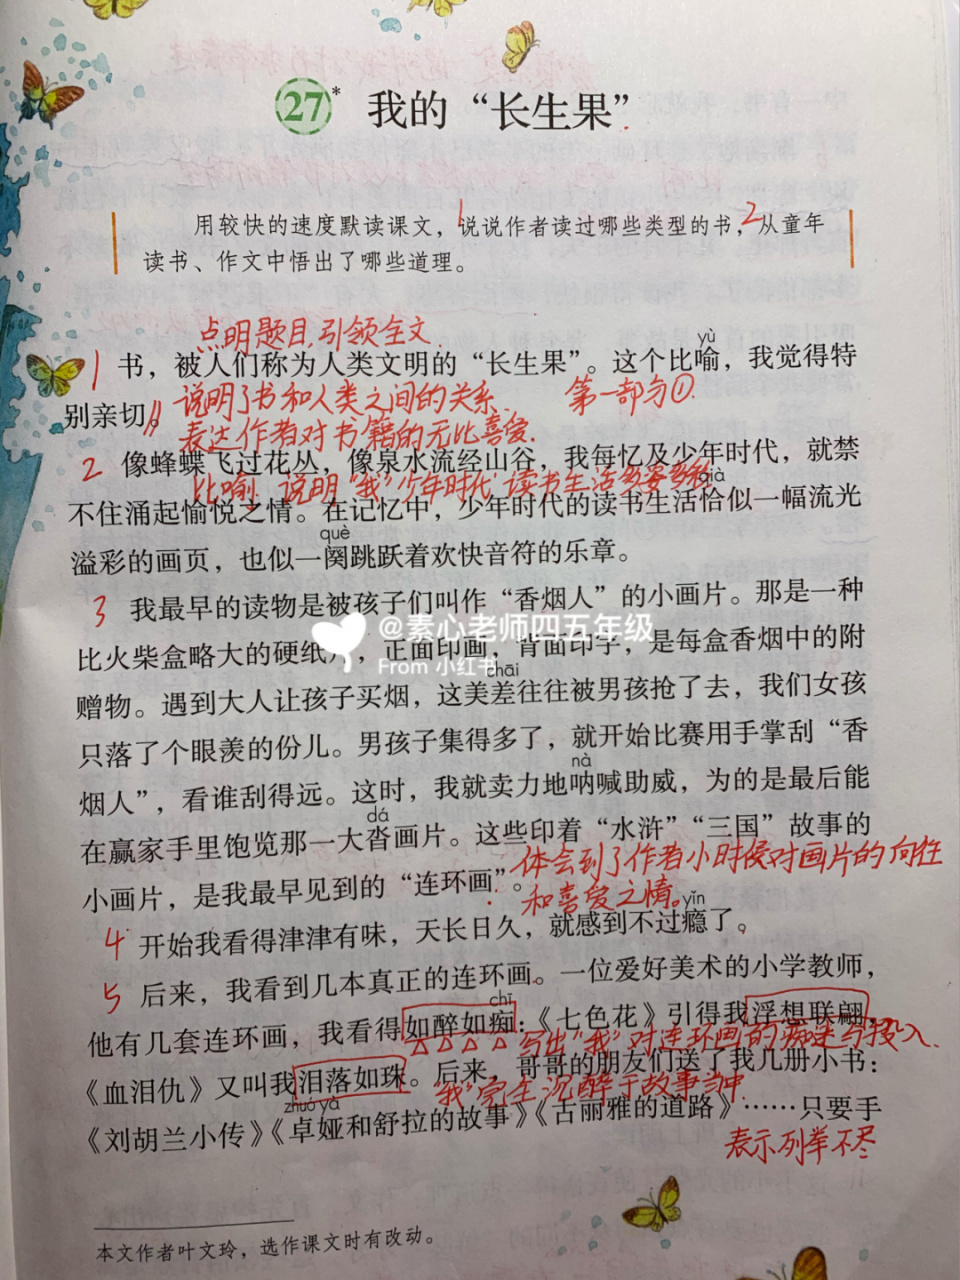 27* 我的“长生果”
用较快的速度默读课文，1说说作者读过哪些类型的书，2从童年
读书、作文中悟出了哪些道理。
点明题目，引领全文.
yù
1 书，被人们称为人类文明的“长生果”。这个比喻，我觉得特
别亲切。
说明了书和人类之间的关系. 第一部分①.
表达作者对书籍的无比喜爱.
2 像蜂蝶飞过花丛，像泉水流经山谷，我每忆及少年时代，就禁
比喻 说明“我”少年时代读书生活多姿多彩
qià
不住涌起愉悦之情。在记忆中，少年时代的读书生活恰似一幅流光
què
溢彩的画页，也似一阕跳跃着欢快音符的乐章。
3 我最早的读物是被孩子们叫作“香烟人”的小画片。那是一种
@素心老师四五年级
比火柴盒略大的硬纸片，正面印画，背面印字，是每盒香烟中的附
From 小红书
chāi
赠物。遇到大人让孩子买烟，这美差往往被男孩抢了去，我们女孩
只落了个眼羡的份儿。男孩子集得多了，就开始比赛用手掌刮“香
nà
烟人”，看谁刮得远。这时，我就卖力地呐喊助威，为的是最后能
dá
在赢家手里饱览那一大沓画片。这些印着“水浒”“三国”故事的
体会到了作者小时候对画片的向往
小画片，是我最早见到的“连环画”。
和喜爱之情。
yǐn
4 开始我看得津津有味，天长日久，就感到不过瘾了。
5 后来，我看到几本真正的连环画。一位爱好美术的小学教师，
chī
他有几套连环画，我看得如醉如痴：《七色花》引得我浮想联翩，
写出“我”对连环画的痴迷与投入.
《血泪仇》又叫我泪落如珠。后来，哥哥的朋友们送了我几册小书：
“我”完全沉醉于故事当中.
zhuó yà
《刘胡兰小传》《卓娅和舒拉的故事》《古丽雅的道路》……只要手
表示列举不尽
本文作者叶文玲，选作课文时有改动。